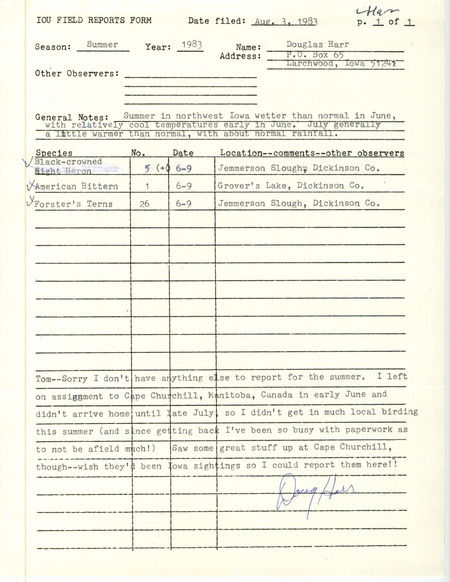 Harr
IOU FIELD REPORTS FORM Date filed: Aug. 3, 1983 p. 1 of 1
Season: Summer Year: 1983 Name: Douglas Harr
Address: P.O. Box 65
Larchwood, Iowa 51241
Other Observers:
General Notes: Summer in northwest Iowa wetter than normal in June,
with relatively cool temperatures early in June. July generally
a little warmer than normal, with about normal rainfall.
Species No. Date Location--comments--other observers
Black-crowned
Night Heron 5 (+) 6-9 Jemmerson Slough, Dickinson Co.
American Bittern 1 6-9 Grover's Lake, Dickinson Co.
Forster's Terns 26 6-9 Jemmerson Slough, Dickinson Co.
Tom--Sorry I don't have anything else to report for the summer. I left
on assignment to Cape Churchill, Manitoba, Canada in early June and
didn't arrive home until late July, so I didn't get in much local birding
this summer (and since getting back I've been so busy with paperwork as
to not be afield much!) Saw some great stuff up at Cape Churchill,
though--wish they'd been Iowa sightings so I could report them here!!
Doug Harr